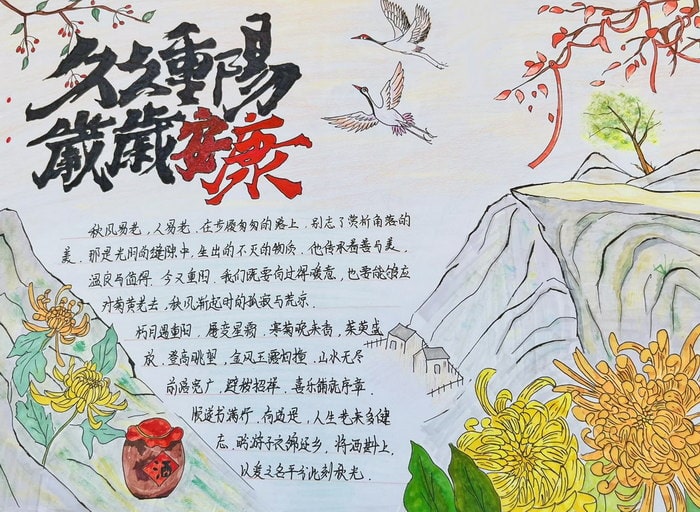 久久重陽
歲歲安康
秋风易老，人易老，在步履匆匆的路上，别忘了赏析角落的
美．那是光阴的缝隙中，生出的不灭的物质．他传承着善与美，
温良与值得．今又重阳．我们既要向过得暖意，也要能够应
对菊黄老去，秋风渐起时的孤寂与荒凉．
朽月遇重阳．屡变星霜．寒菊晚来香，茱萸盛
放．登高眺望，金风玉露初撞，山水无尽
前路宽广，避灾招祥，喜乐铺就序章．
顺遂书满行，向边走，人生艺来多健
忘．盼游子衣锦还乡，将酒斟上，
以爱之名平分此刻秋光．
酒